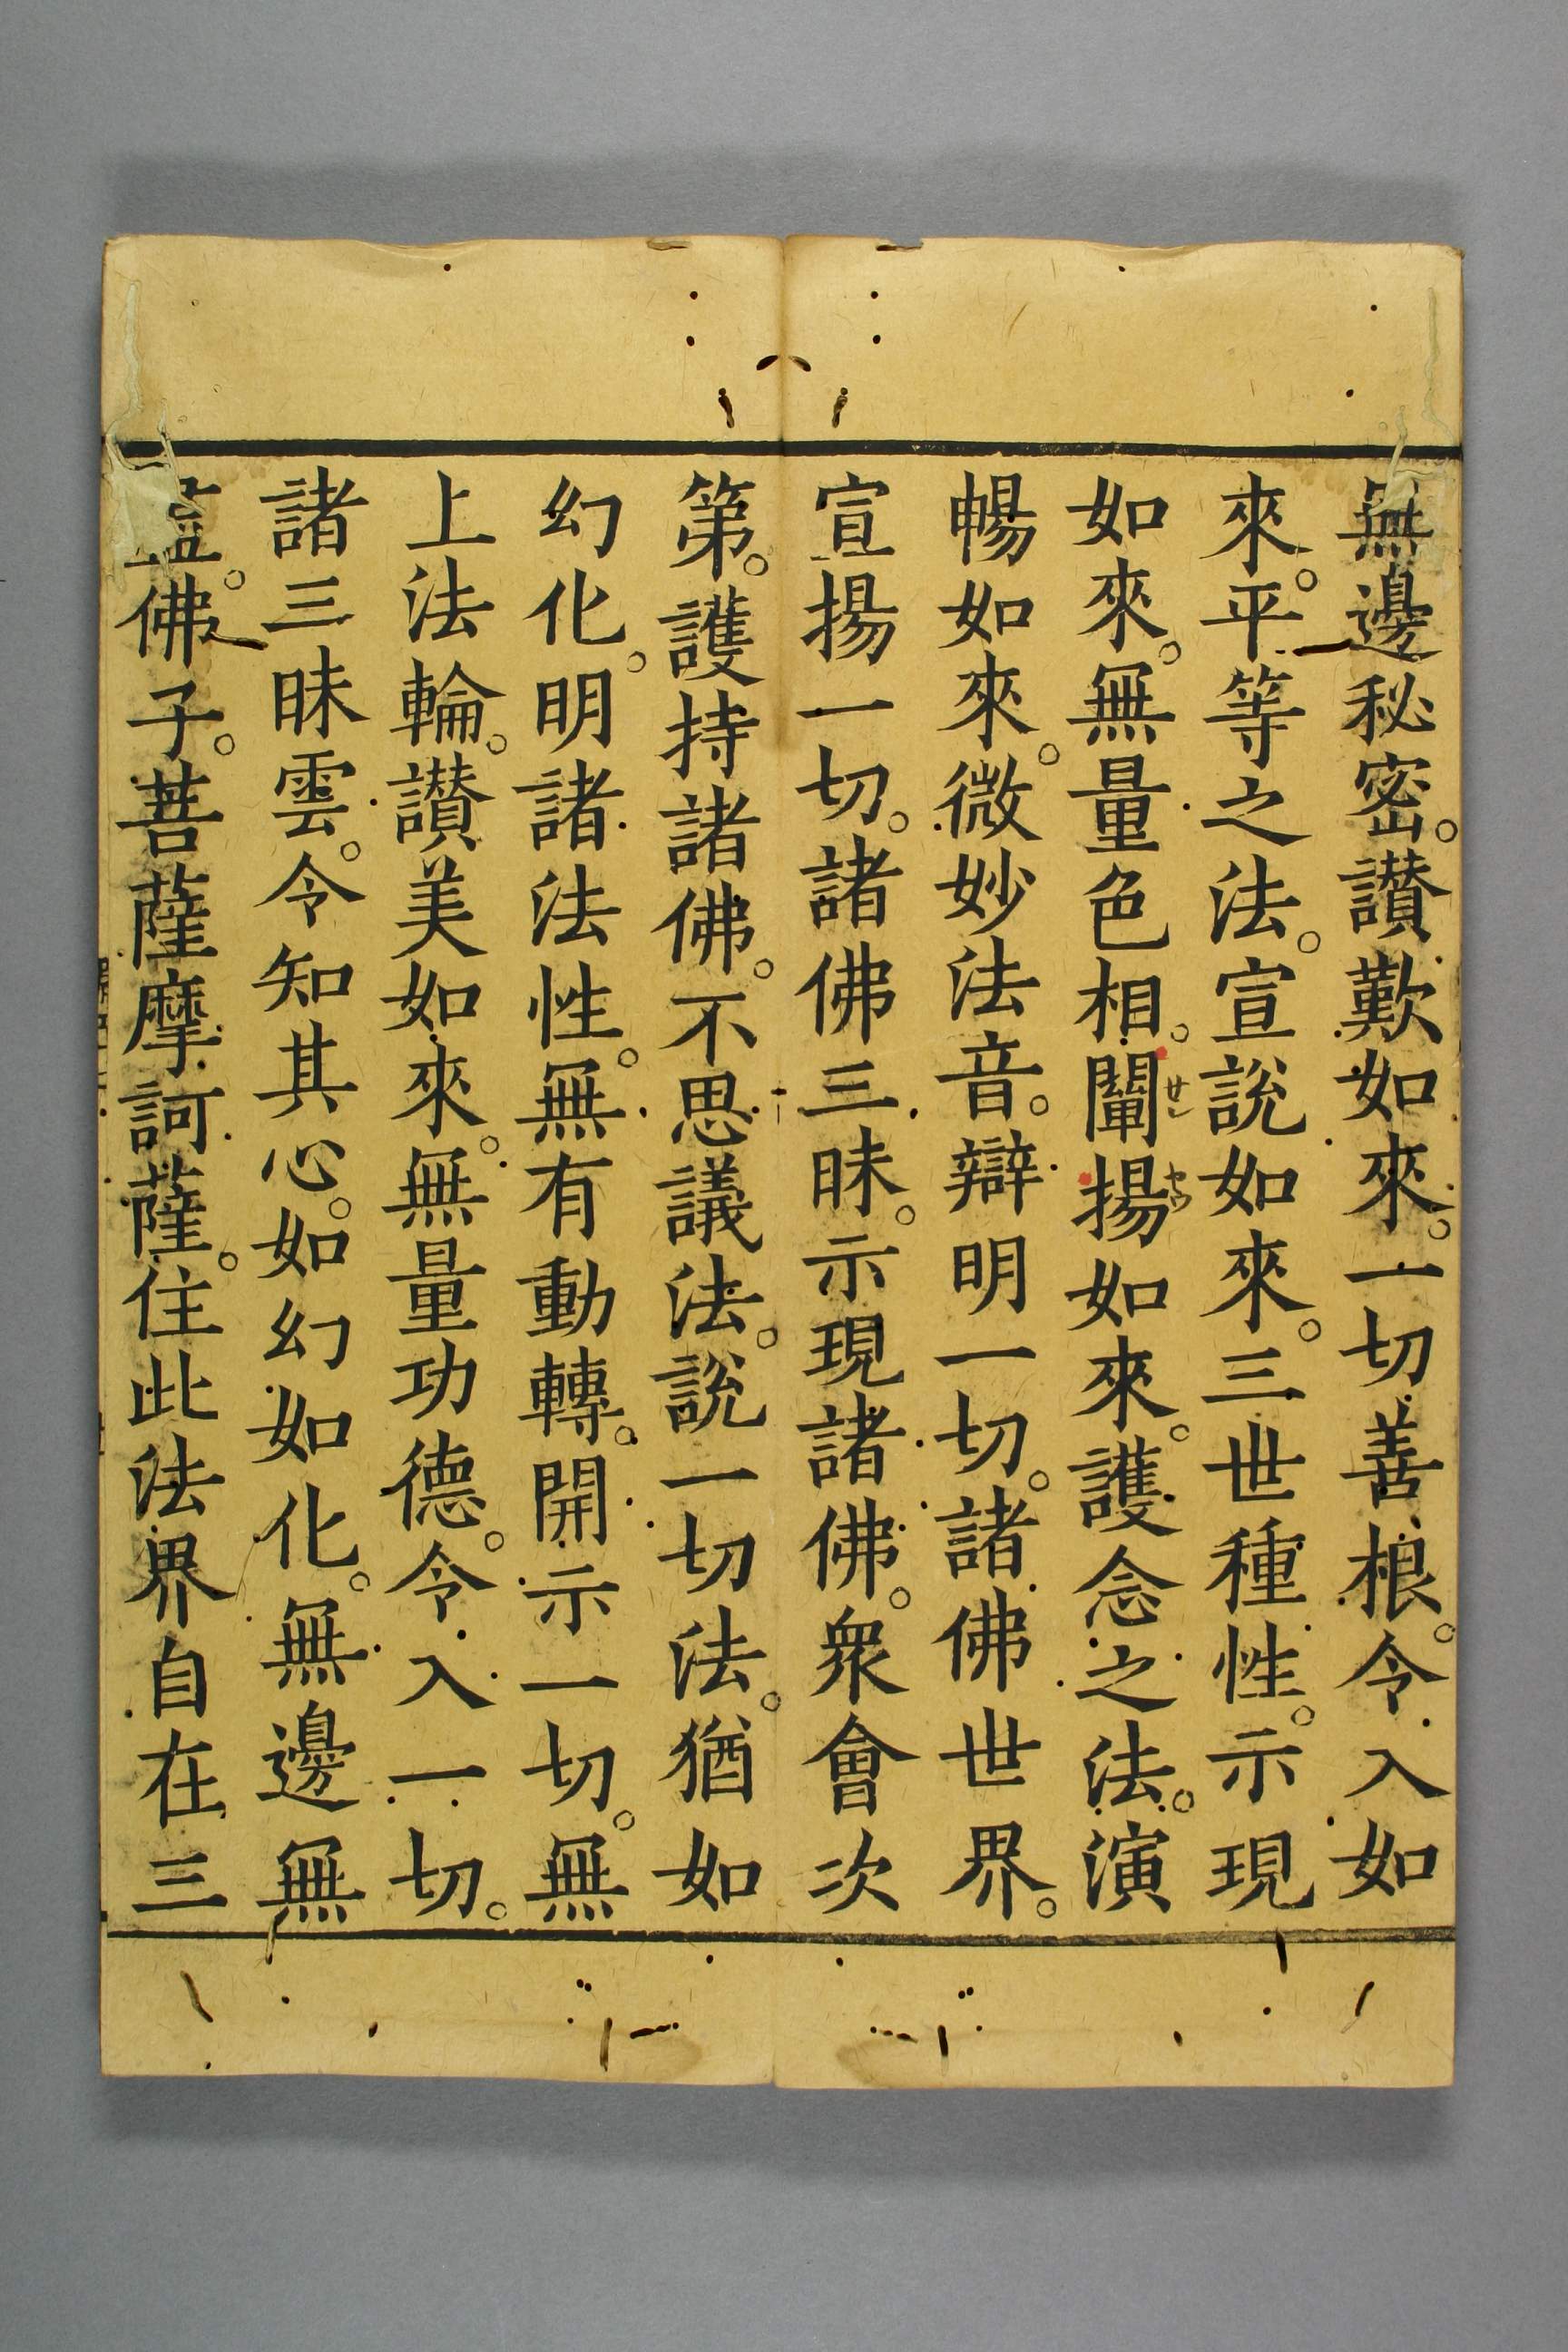 無邊秘密。讃歎如來。一切善根。令入如
來。平等之法。宣說如來。三世種性。示現
如來。無量色相。闡揚如來。護念之法。演
暢如來。微妙法音。辯明一切。諸佛世界。
宣揚一切。諸佛三昧。示現諸佛。衆會次
第。護持諸佛。不思議法。說一切法。猶如
幻化。明諸法性。無有動轉。開示一切。無
上法輪。讃美如來。無量功德。令入一切。
諸三昧雲。令知其心。如幻如化。無邊無
盡。佛子。菩薩摩訶薩。住此法界自在三